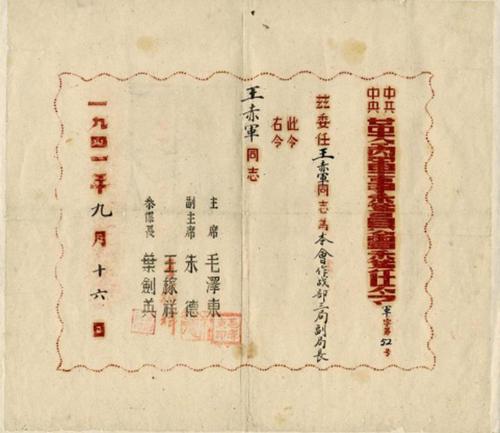 中共
中央
革命軍事委員會委任令
軍字第52号
茲委任王赤軍同志為本會作战部三局副局長
此令
右令
王赤軍同志
主席 毛澤東
副主席 朱德
王稼祥
參謀長 葉劍英
一九四一年九月十六日